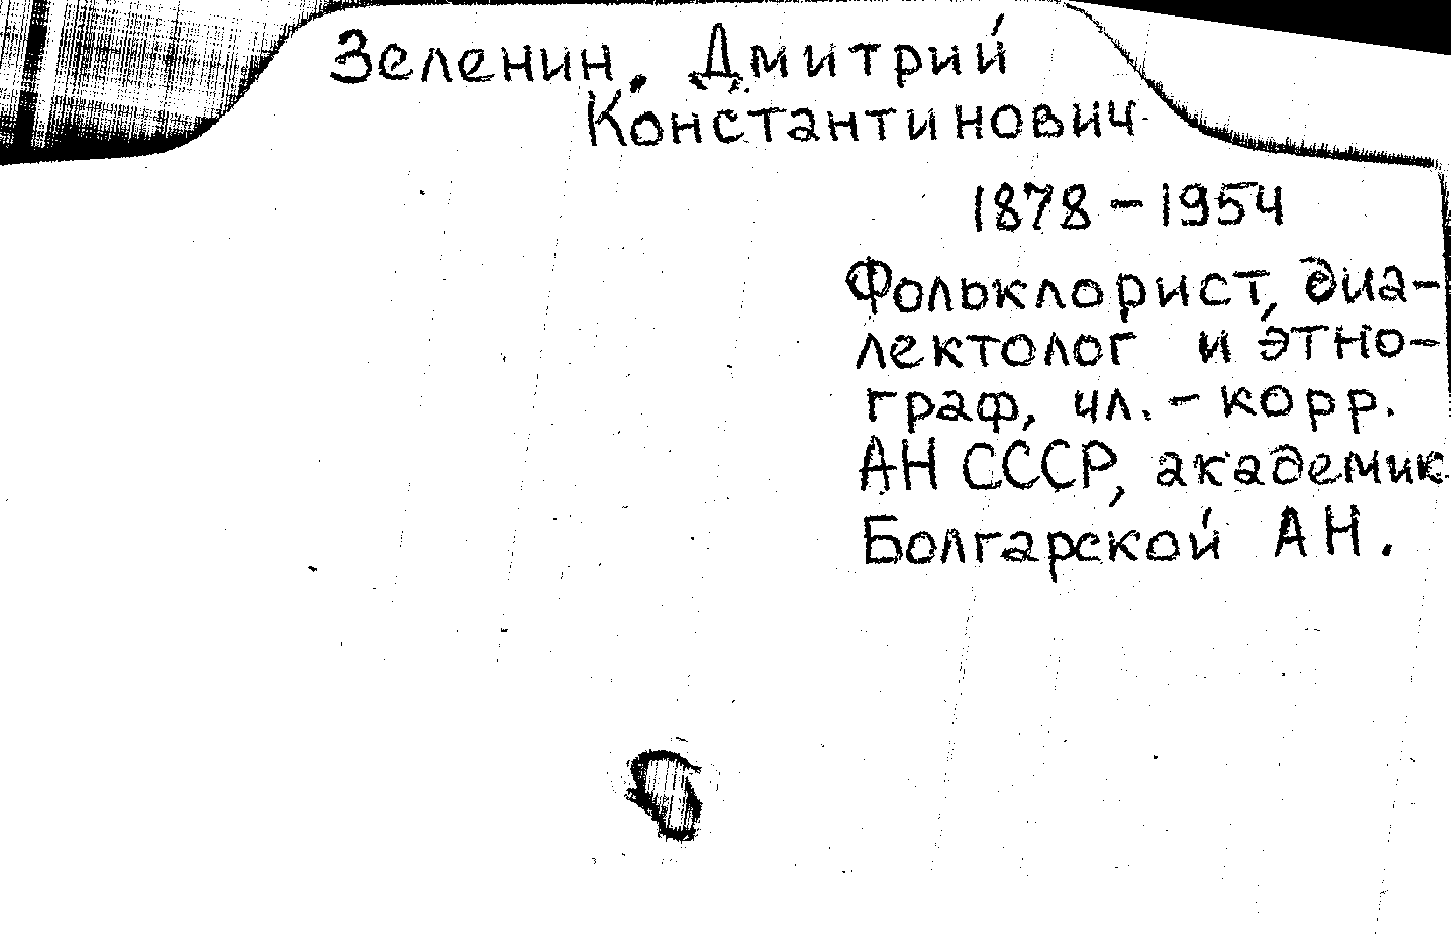 Зеленин, Дмитрий
Константинович
1878 - 1954
Фольклорист, диа-
лектолог и этно-
граф, чл.-корр.
АН СССР, академик
Болгарской АН.